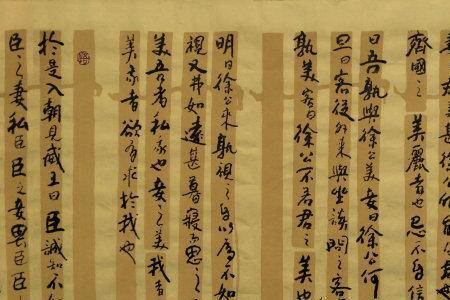 齊國之美麗者也忌不自信
曰吾孰與徐公美妾曰徐公何
旦日客從外来與坐談問之客
孰美客曰徐公不若君之美也
明日徐公来孰視之自以為不如
視又弗如遠甚暮寢而思之
美吾者私我也妾之美我者
美我者欲有求於我也
於是入朝見威王曰臣誠知不如
臣之妻私臣臣之妾畏臣臣